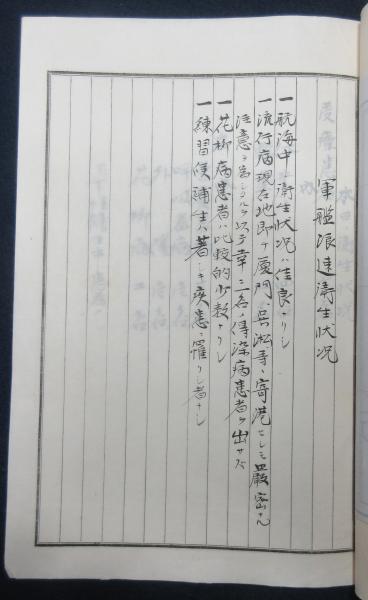 軍艦浪速衛生状况
一航海中ノ衛生状况ハ佳良ナリシ
一流行病現在地即チ厦門、呉淞等ヘ寄港セシモ嚴密ナル
注意ヲ為シタルヲ以テ幸ニ一名ノ傳染病患者ヲ出サス
一花柳病患者ハ比較的少数ナリシ
一練習候補生ハ著シキ疾患ニ罹リシ者ナシ